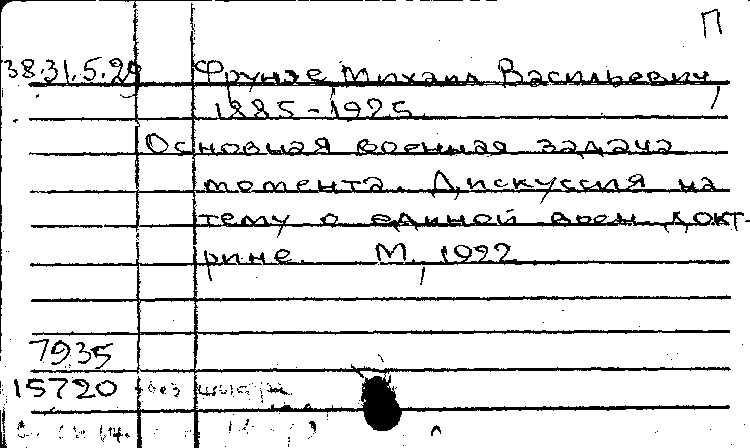 П
38.31.5.29 Фрунзе, Михаил Васильевич,
1885-1925.
Основная военная задача
момента. Дискуссия на
тему о единой воен. докт-
рине. М., 1922.
7935
15720 без